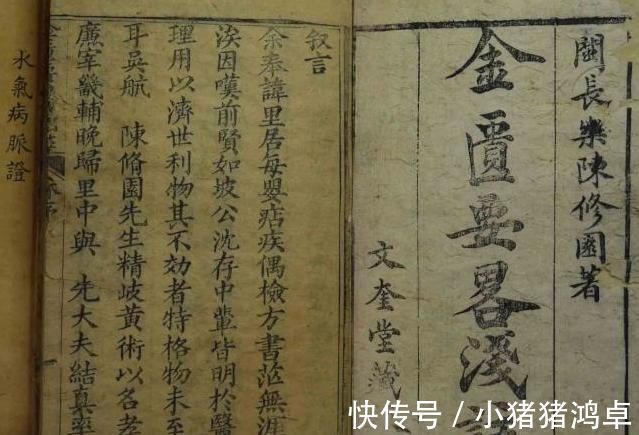 閩長樂陳修園著
金匱要畧淺
文奎堂藏
叙言
余奉諱里居每嬰痁疾偶檢方書茫無涯
涘因嘆前賢如坡公沈存中輩皆明於醫
理用以濟世利物其不効者特格物未至
耳吳航 陳脩園先生精岐黃術以名孝
廉宰畿輔晚歸里中與 先大夫結真率
水氣病脈證
快传号 / 小猪猪鸿卓